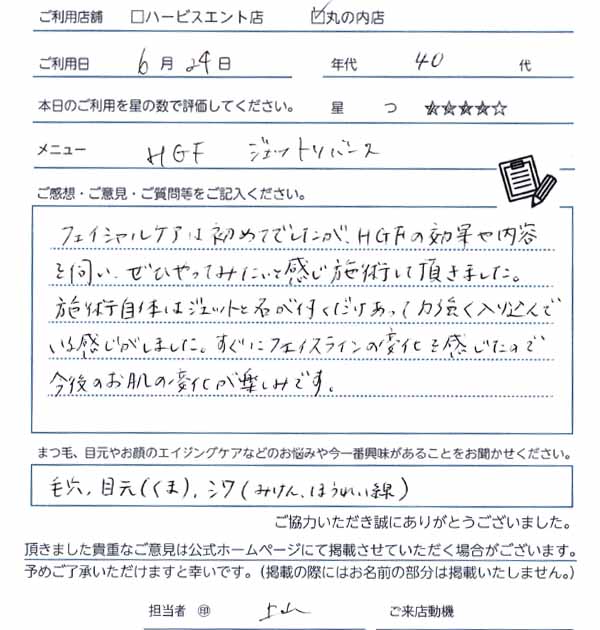 ご利用店舗 □ハービスエント店 ☑丸の内店
ご利用日 6月24日 年代 40代
本日のご利用を星の数で評価してください。 星 つ ★★★★☆
メニュー HGF ジェットリバース
ご感想・ご意見・ご質問等をご記入ください。
フェイシャルケアは初めてでしたが、HGFの効果や内容
を伺い、ぜひやってみたいと感じ施術して頂きました。
施術自体はジェットと名が付くだけあって力強く入り込んで
いる感じがしました。すぐにフェイスラインの変化を感じたので
今後のお肌の変化が楽しみです。
まつ毛、目元やお顔のエイジングケアなどのお悩みや今一番興味があることをお聞かせください。
毛穴，目元（くま），シワ（みけん、ほうれい線）
ご協力いただき誠にありがとうございました。
頂きました貴重なご意見は公式ホームページにて掲載させていただく場合がございます。
予めご了承いただけますと幸いです。（掲載の際にはお名前の部分は掲載いたしません。）
担当者 ㊞ ご来店動機